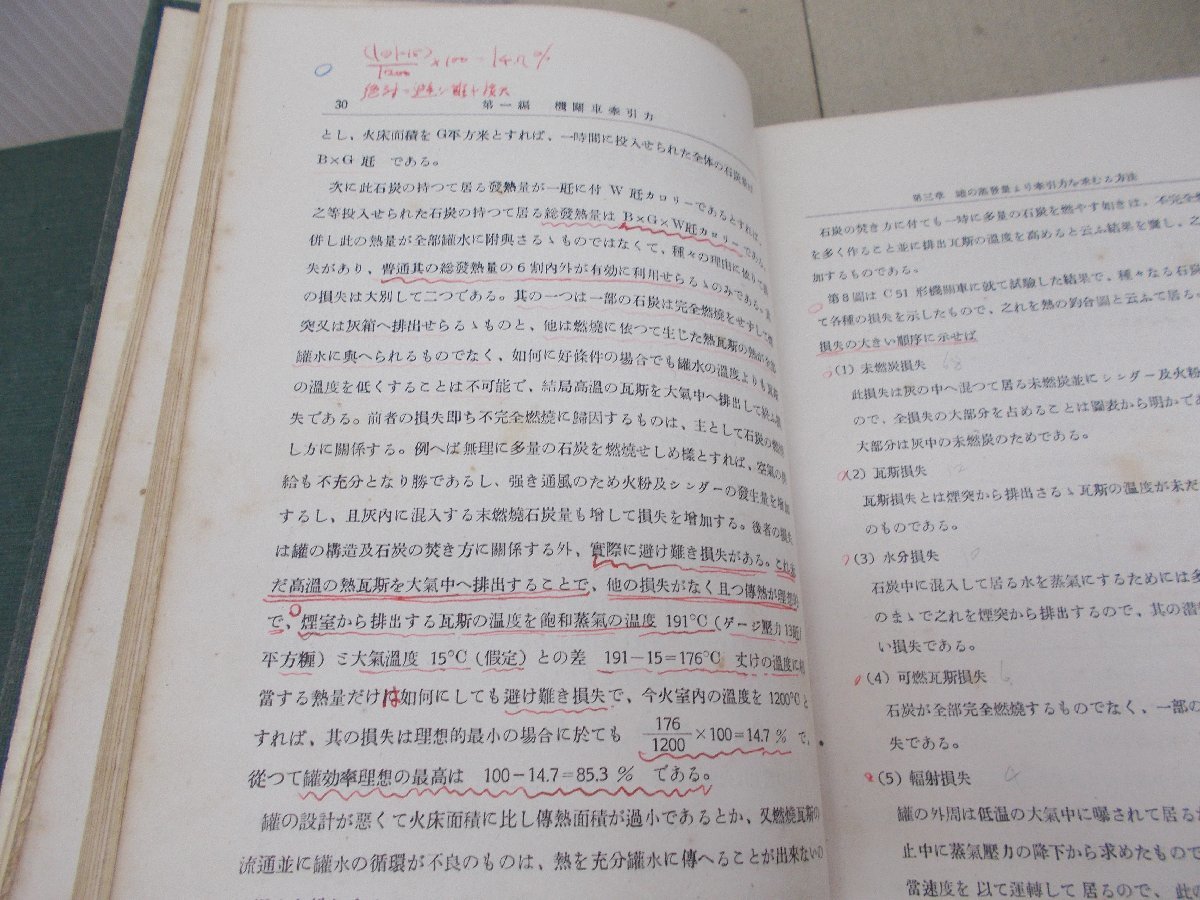 (191-15)/1200 ×100 = 14.7%
30 第一編 機關車牽引力
とし、火床面積を G平方米とすれば、一時間に投入せられた全体の石炭量は
B×G 瓩 である。
次に此石炭の持つて居る發熱量が一瓩に付 W 瓩カロリーであるとすれば、
之等投入せられた石炭の持つて居る総發熱量は B×G×W瓩カロリーである。
併し此の熱量が全部罐水に附與さるゝものではなくて、種々の理由に依りて損
失があり、普通其の総發熱量の6割内外が有効に利用せらるゝのみである。其
の損失は大別して二つである。其の一つは一部の石炭は完全燃燒をせずして煙
突又は灰箱へ排出せらるゝものと、他は燃燒に依つて生じた熱瓦斯の熱が全部
罐水に與へられるものでなく、如何に好條件の場合でも罐水の溫度よりも瓦斯
の溫度を低くすることは不可能で、結局高溫の瓦斯を大氣中へ排出して
失である。前者の損失即ち不完全燃燒に歸因するものは、主として石炭の燃燒
し方に關係する。例へば無理に多量の石炭を燃燒せしめ樣とすれば、空氣の供
給も不充分となり勝であるし、强き通風のため火粉及シンダーの發生量を增加
するし、且灰内に混入する未燃燒石炭量も增して損失を增加する。後者の損失
は罐の構造及石炭の焚き方に關係する外、實際に避け難き損失がある。これ
だ高溫の熱瓦斯を大氣中へ排出することで、他の損失がなく且つ傳熱が理想的
で、煙室から排出する瓦斯の溫度を飽和蒸氣の溫度 191°C(ゲージ壓力13瓩/
平方糎)ミ大氣溫度 15°C(假定)との差 191-15=176°C 丈けの溫度に相
當する熱量だけは如何にしても避け難き損失で、今火室内の溫度を 1200°C と
すれば、其の損失は理想的最小の場合に於ても 176/1200 ×100=14.7 % で、
從つて罐効率理想の最高は 100-14.7=85.3 % である。
罐の設計が悪くて火床面積に比し傳熱面積が過小であるとか、又燃燒瓦斯の
流通並に罐水の循環が不良のものは、熱を充分罐水に傳へることが出來ないの
第三章 罐の蒸發量より牽引力を求むる方法
石炭の焚き方に付ても一時に多量の石炭を燃やす如きは、不完全燃
を多く作ること並に排出瓦斯の溫度を高めると云ふ結果を齎し、之
加するものである。
第8圖は C51 形機關車に就て試驗した結果で、種々なる石炭
て各種の損失を示したもので、之れを熱の釣合圖と云ふて居る
損失の大きい順序に示せば
(1) 未燃炭損失
此損失は灰の中へ混つて居る未燃炭並にシンダー及火粉
ので、全損失の大部分を占めることは圖表から明かであ
大部分は灰中の未燃炭のためである。
(2) 瓦斯損失 12
瓦斯損失とは煙突から排出さるゝ瓦斯の溫度が未だ
のものである。
(3) 水分損失
石炭中に混入して居る水を蒸氣にするためには多
のまゝで之れを煙突から排出するので、其の潜
い損失である。
(4) 可燃瓦斯損失
石炭が全部完全燃燒するものでなく、一部の
失である。
(5) 輻射損失
罐の外周は低溫の大氣中に曝されて居るか
止中に蒸氣壓力の降下から求めたもので
當速度を以て運轉して居るので、此の